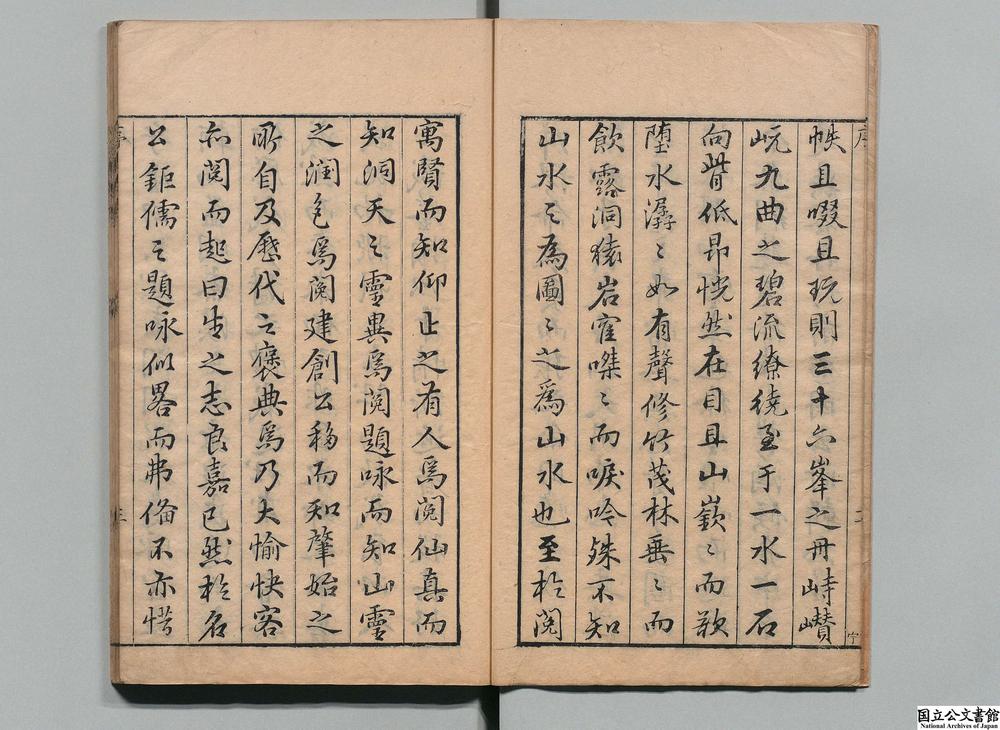 序
帙且啜且玩則三十六峯之丹崎巑
岏九曲之碧流繚繞至于一水一石
向背低昻恍然在目且山嶔〻而欲
墮水潺〻如有聲修竹茂林垂〻而
飲露洞猿岩隺嘷〻而唳吟殊不知
山水之為圖〻之爲山水也至於閱
寓賢而知仰止之有人焉閱仙真而
知洞天之靈異焉閱題咏而知山靈
之潤色焉閱建創公移而知肇始之
所自及歷代之褒典焉乃大愉快客
亦閱而起曰生之志良嘉已然於名
公鉅儒之題咏似畧而弗俻不亦惜
序
三
国立公文書館
National Archives of Japan